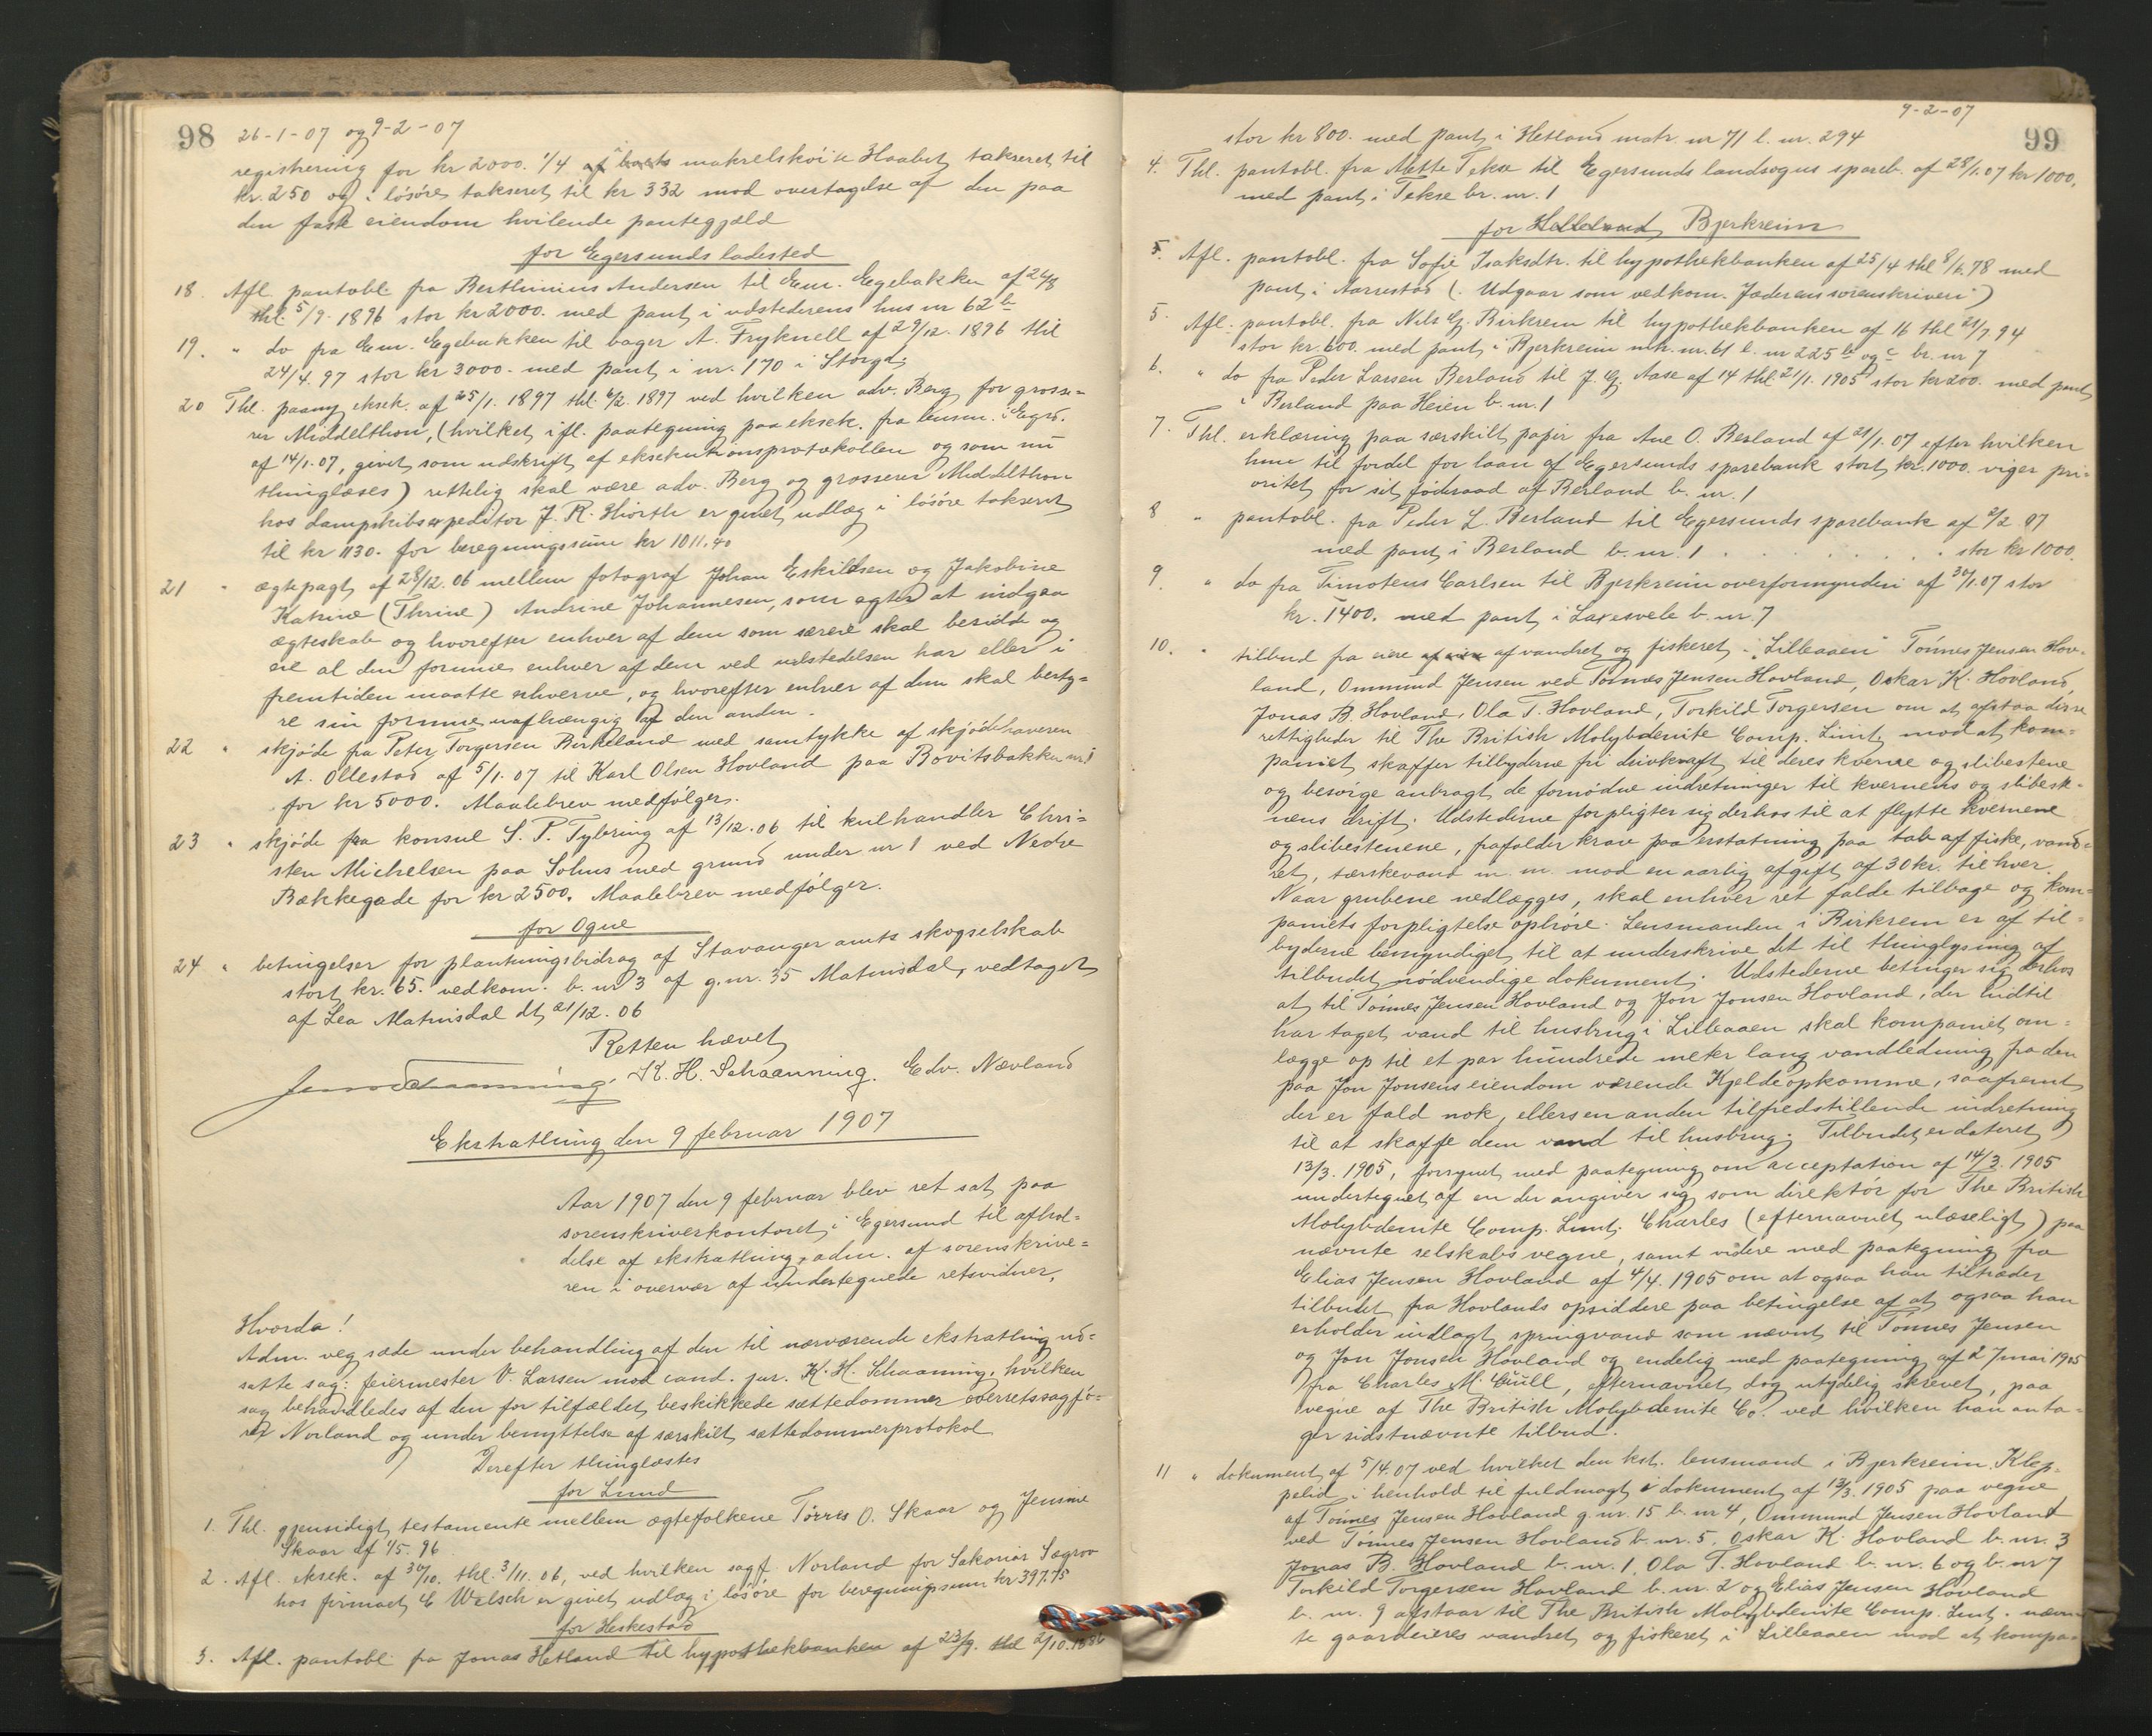 98
26-1-07 og 9-2-07
registrering for kr 2000. 1/4 i makrelskøite Haabet takseret til
kr. 250 og i løsøre takseret til kr 332 mod overtagelse af den paa
den faste eiendom hvilende pantegjæld
for Egersunds ladested
18. Afl. pantobl fra Berthinius Andersen til Em. Egebakken af 24/8
thl. 5/9. 1896 stor kr 2000. med pant i udstederens hus nr 62 b
19. " do fra Em. Egebakken til bager A. Fryknell af 29/12. 1896 thl
24/4. 97 stor kr 3000. med pant i nr. 170 i Storgd.
20 Thl. paany eksek. af 25/1. 1897 thl. 6/2. 1897 ved hvilken adv. Berg for grosse-
rer Middelthon, (hvilket ifl. paategning paa eksek. fra lensm. i Egrs.
af 14/1. 07, givet som udskrift af eksekutionsprotokollen og som nu
thinglæses) rettelig skal være adv. Berg og grosserer Middelthon
hos dampskibsexpeditør J. R. Hiorth er givet udlæg i løsøre takseret
til kr 1130. for beregningssum kr 1011.40
21 " ægtepagt af 28/12. 06 mellem fotograf Johan Eskildsen og Jakobine
Katrine (Thrine) Andrine Johannesen, som agter at indgaa
ægteskab og hvorefter enhver af dem som særeie skal besidde og
eie al den formue enhver af dem ved udstedelsen har eller i
fremtiden maatte erhverve, og hvorefter enhver af dem skal besty-
re sin formue uafhængig af den anden.
22 " skjøde fra Peter Torgersen Birkeland med samtykke af skjødehaveren
A. Ollestad af 5/1. 07 til Karl Olsen Hovland paa Bovitsbakken nr. 1
for kr 5000. Maalebrev medfølger.
23 " skjøde fra konsul S. P. Tybring af 13/12. 06 til kulhandler Chri-
sten Michelsen paa Søhus med grund under nr 1 ved Nedre
Bækkegade for kr 2500. Maalebrev medfølger.
for Ogne
24 " betingelser for plantningsbidrag af Stavanger amts skogselskab
stort kr. 65. vedkom. b. nr 3 af g. nr. 35 Matnisdal, vedtaget
af Lea Matnisdal dt. 21/12. 06
Retten hævet
Schaanning. K. H. Schaanning. Edv. Nævland
Ekstratthing den 9 februar 1907
Aar 1907 den 9 februar blev ret sat paa
sorenskriverkontoret i Egersund til afhol-
delse af ekstratthing, adm. af sorenskrive-
ren i overvær af undertegnede retsvidner.
Hvorda!
Adm. veg sæde under behandling af den til nærværende ekstratthing ud-
satte sag: feiermester V. Larsen mod cand. jur. K. H. Schaanning, hvilken
sag behandledes af den for tilfældet beskikkede sættedommer overretssagfø-
rer Norland og under benyttelse af særskilt sættedommerprotokol
Derefter thinglæstes
for Lund
1. Thl. gjensidigt testamente mellem ægtefolkene Tørres O. Skaar og Jensine
Skaar af 1/5. 96.
2. Afl. eksek. af 30/10. thl. 3/11. 06, ved hvilken sagf. Norland for Sakarias Sægrov
hos firmaet E Walsch er givet udlæg i løsøre for beregningssum kr 397.75
for Heskestad
3. Afl. pantobl. fra Jonas Hetland til hypothekbanken af 23/9. thl 2/10. 1886
9-2-07
99
stor kr 800. med pant i Hetland matr. nr 71 l. nr. 294
4. Thl. pantobl. fra Mette Tekse til Egersunds landsogns spareb. af 28/1. 07 kr 1000.
med pant i Tekse br. nr. 1
for Helleland Bjerkreim
5. Afl. pantobl. fra Sofie Isaksdtr. til hypothekbanken af 25/4 thl 8/6. 78 med
pant i Aarrestad (. Udgaar som vedkom. Jæderens sorenskriveri )
5. Afl. pantobl. fra Nils G. Birkrem til hypothekbanken af 16 thl 21/7 94
stor kr. 600. med pant i Bjerkreim mtr. nr. 61 l. nr 225 b og c br. nr 7
6. " do fra Peder Larsen Berland til J. G. Aase af 14 thl 21/1. 1905 stor kr 200. med pant
i Berland paa Heien b. nr. 1
7. Thl. erklæring paa særskilt papir fra Ane O. Berland af 21/1. 07 efter hvilken
hun til fordel for laan af Egersunds sparebank stort kr. 1000. viger pri-
oritet for sit føderaad af Berland b. nr. 1
8 " pantobl. fra Peder L. Berland til Egersunds sparebank af 2/2. 07
med pant i Berland b. nr. 1 . . . . . . . stor kr 1000.
9. " do fra Timoteus Carlsen til Bjerkreim overformynderi af 30/1. 07 stor
kr. 1400. med pant i Laxesvele b. nr. 7
10. " tilbud fra eiere af vandret og fiskeret i "Lilleaaen" Tønnes Jensen Hov-
land, Ommund Jensen ved Tønnes Jensen Hovland, Oskar K. Hovland,
Jonas B. Hovland, Ola T. Hovland, Torkild Torgersen om at afstaa disse
rettigheder til The British Molybdenite Comp. Limt. mod at kom-
paniet skaffer tilbyderne fri drivkraft til deres kverne og slibestene
og besørge anbragt de fornødne indretninger til kvernens og slibeste-
nens drift. Udstederne forpligter sig derhos til at flytte kvernene
og slibestenene, frafalder krav paa erstatning paa tab af fiske, vand-
ret, tærskevand m. m. mod en aarlig afgift af 30 kr. til hver.
Naar grubene nedlægges, skal enhver ret falde tilbage og kom-
paniets forpligtelse ophøre. Lensmanden i Birkrem er af til-
byderne bemyndiget til at underskrive det til thinglysning af
tilbudet nødvendige dokument. Udstederne betinger sig derhos
at til Tønnes Jensen Hovland og Jon Jonsen Hovland, der hidtil
har taget vand til husbrug i Lilleaaen skal kompaniet om-
lægge op til et par hundrede meter lang vandledning fra den
paa Jon Jonsens eiendom værende Kjeldeopkomme, saafremt
der er fald nok, ellers en anden tilfredstillende indretning
til at skaffe dem vand til husbrug. Tilbudet er dateret
13/3. 1905, forsynet med paategning om acceptation af 14/3. 1905
undertegnet af en der angiver sig som direktør for The British
Molybdenite Comp. Limt. Charles (efternavnet ulæseligt) paa
nævnte selskabs vegne, samt videre med paategning fra
Elias Jensen Hovland af 4/4. 1905 om at ogsaa han tiltræder
tilbudet fra Hovlands opsiddere paa betingelse af at ogsaa han
erholder indlagt springvand som nævnt til Tønnes Jensen
og Jon Jonsen Hovland og endelig med paategning af 27 mai 1905
fra Charles M. Quill, efternavnet dog utydelig skrevet, paa
vegne af The British Molybdenite Co. ved hvilken han anta-
ger sidstnævnte tilbud.
11 " dokument af 5/4. 07 ved hvilket den kst. lensmand i Bjerkreim Klep-
pelid i henhold til fuldmagt i dokument af 13/3. 1905 paa vegne
af Tønnes Jensen Hovland g. nr. 15 b. nr 4, Ommund Jensen Hovland
ved Tønnes Jensen Hovland b. nr. 5, Oskar K. Hovland b. nr. 3
Jonas B. Hovland b. nr. 1, Ola T. Hovland b. nr. 6 og b. nr 7
Torkild Torgersen Hovland b. nr. 2 og Elias Jensen Hovland
b. nr. 9 afstaar til The British Molybdenite Comp. Limt. nævn-
te gaardeieres vandret og fiskeret i Lilleaaen mod at kompa-